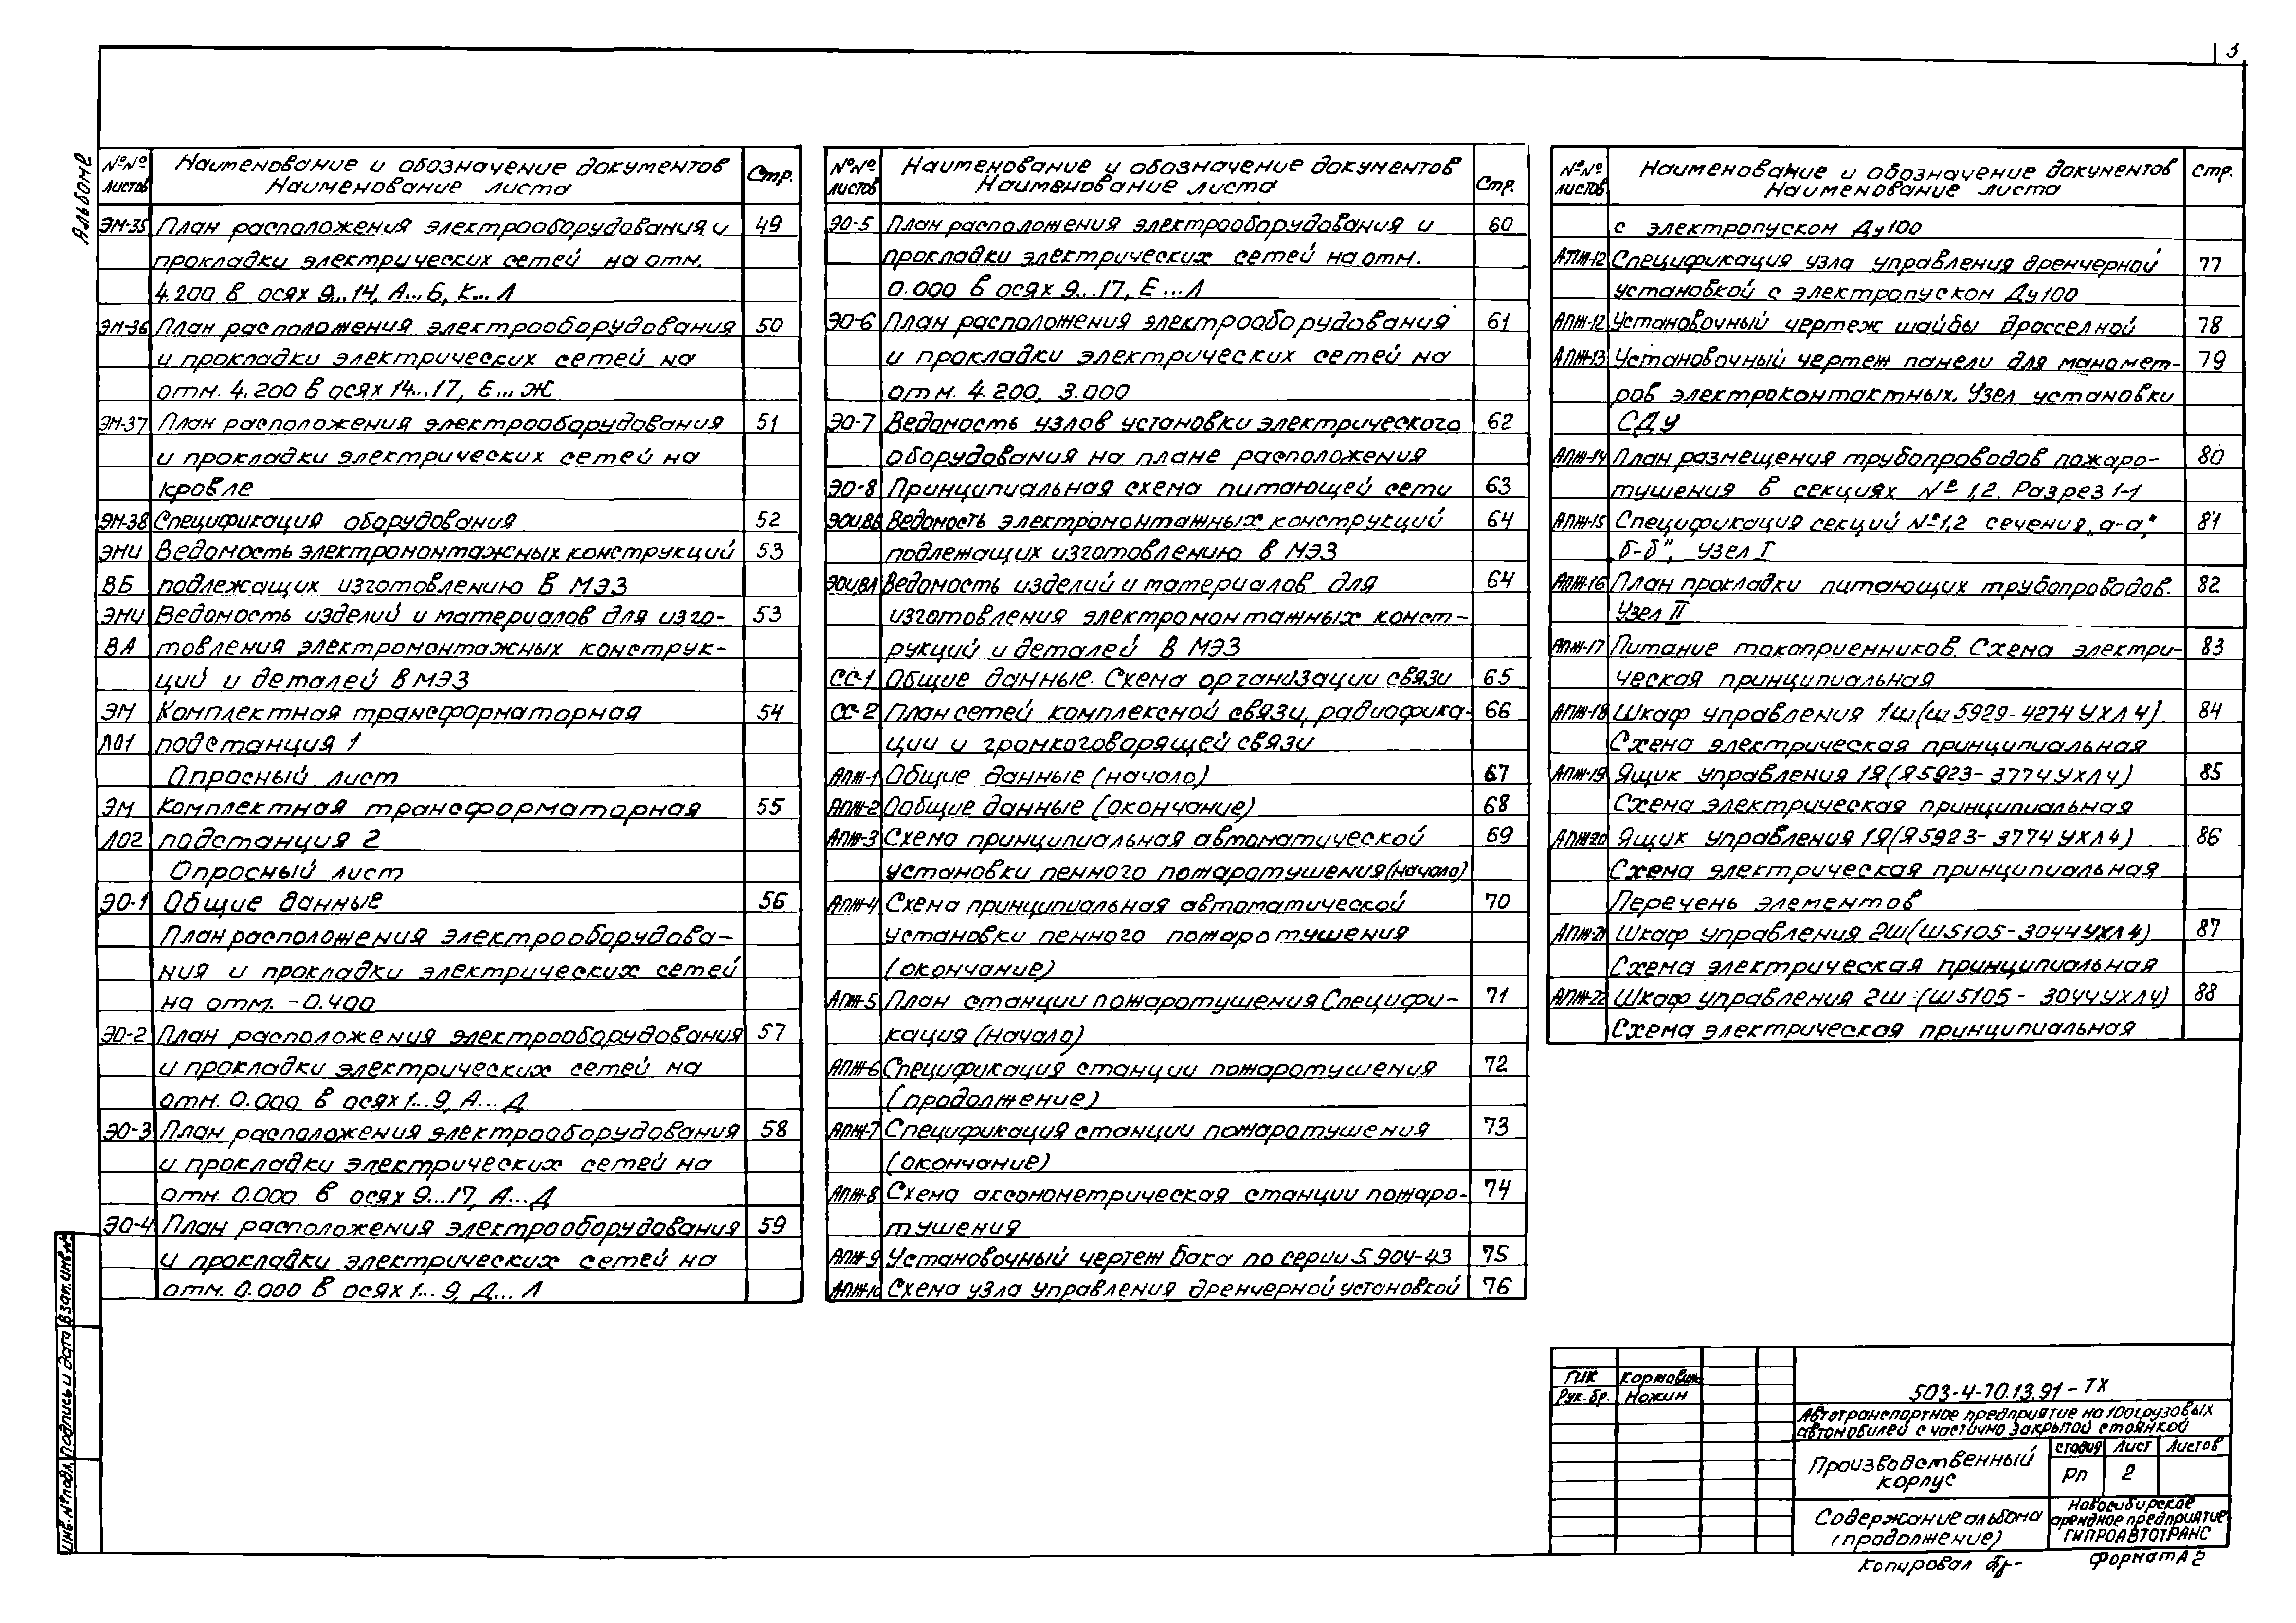 3
Альбом 2
№№ листов Наименование и обозначение документов Наименование листа Стр.
ЭМ-35 План расположения электрооборудования и 49
прокладки электрических сетей на отм.
4.200 в осях 9...14, А...Б, К...Л
ЭМ-36 План расположения электрооборудования 50
и прокладки электрических сетей на
отм. 4.200 в осях 14...17, Е...Ж
ЭМ-37 План расположения электрооборудования 51
и прокладки электрических сетей на
кровле
ЭМ-38 Спецификация оборудования 52
ЭМИ Ведомость электромонтажных конструкций 53
ВБ подлежащих изготовлению в МЭЗ
ЭМИ Ведомость изделий и материалов для изго- 53
ВА товления электромонтажных конструк-
ций и деталей в МЭЗ
ЭМ Комплектная трансформаторная 54
Л01 подстанция 1
Опросный лист
ЭМ Комплектная трансформаторная 55
Л02 подстанция 2
Опросный лист
ЭО-1 Общие данные 56
План расположения электрооборудова-
ния и прокладки электрических сетей
на отм. -0.400
ЭО-2 План расположения электрооборудования 57
и прокладки электрических сетей на
отм. 0.000 в осях 1...9, А...Д
ЭО-3 План расположения электрооборудования 58
и прокладки электрических сетей на
отм. 0.000 в осях 9...17, А...Д
ЭО-4 План расположения электрооборудования 59
и прокладки электрических сетей на
отм. 0.000 в осях 1...9, Д...Л
№№ листов Наименование и обозначение документов Наименование листа Стр.
ЭО-5 План расположения электрооборудования и 60
прокладки электрических сетей на отм.
0.000 в осях 9...17, Е...Л
ЭО-6 План расположения электрооборудования 61
и прокладки электрических сетей на
отм. 4.200, 3.000
ЭО-7 Ведомость узлов установки электрического 62
оборудования на плане расположения
ЭО-8 Принципиальная схема питающей сети 63
ЭОИ.ВБ Ведомость электромонтажных конструкций 64
подлежащих изготовлению в МЭЗ
ЭОИ.ВА Ведомость изделий и материалов для 64
изготовления электромонтажных конст-
рукций и деталей в МЭЗ
СС-1 Общие данные. Схема организации связи 65
СС-2 План сетей комплексной связи, радиофика- 66
ции и громкоговорящей связи
АПЖ-1 Общие данные (начало) 67
АПЖ-2 Ообщие данные (окончание) 68
АПЖ-3 Схема принципиальная автоматической 69
установки пенного пожаротушения (начало)
АПЖ-4 Схема принципиальная автоматической 70
установки пенного пожаротушения
(окончание)
АПЖ-5 План станции пожаротушения Специфи- 71
кация (начало)
АПЖ-6 Спецификация станции пожаротушения 72
(продолжение)
АПЖ-7 Спецификация станции пожаротушения 73
(окончание)
АПЖ-8 Схема аксонометрическая станции пожаро- 74
тушения
АПЖ-9 Установочный чертеж бака по серии 5.904-43 75
АПЖ-10 Схема узла управления дренчерной установкой 76
№№ листов Наименование и обозначение документов Наименование листа Стр.
с электропуском Ду100
АПЖ-12 Спецификация узла управления дренчерной 77
установкой с электропуском Ду100
АПЖ-12 Установочный чертеж шайбы дроссельной 78
АПЖ-13 Установочный чертеж панели для маномет- 79
ров электроконтактных. Узел установки
СДУ
АПЖ-14 План размещения трубопроводов пожаро- 80
тушения в секциях № 1,2. Разрез 1-1
АПЖ-15 Спецификация секций №1,2 сечения „а-а", 81
„б-б", Узел I
АПЖ-16 План прокладки питающих трубопроводов. 82
Узел II
АПЖ-17 Питание токоприемников. Схема электри- 83
ческая принципиальная
АПЖ-18 Шкаф управления 1ш (ш5929-4274 УХЛ4) 84
Схема электрическая принципиальная
АПЖ-19 Ящик управления 1Я (Я5923-3774 УХЛ4) 85
Схема электрическая принципиальная
АПЖ-20 Ящик управления 1Я (Я5923-3774 УХЛ4) 86
Схема электрическая принципиальная
Перечень элементов
АПЖ-21 Шкаф управления 2Ш (Ш5105-3044 УХЛ4) 87
Схема электрическая принципиальная
АПЖ-22 Шкаф управления 2ш (ш5105-3044 УХЛ4) 88
Схема электрическая принципиальная
Инв. № подл. Подпись и дата Взам. инв. №
ГИК
Рук. бр. Ножин
503-4-70.13.91-ТХ
Автотранспортное предприятие на 100 грузовых
автомобилей с частично закрытой стоянкой
Производственный корпус
стадия Лист Листов
РП 2
Содержание альбома
(продолжение)
Новосибирское
арендное предприятие
ГИПРОАВТОТРАНС
Копировал
Формат А2